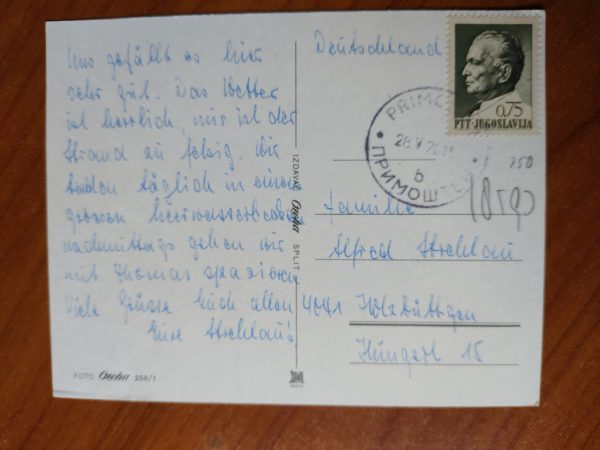 Uns gefällt es hier
sehr gut. Das Wetter
ist herrlich, nur ist der
Strand zu felsig. Wir
baden täglich in einem
grossen Meerwasserbecken
nachmittags gehen wir
mit Thomas spazieren
Viele Grüsse Euch allen
Eure Strehlau's
FOTO 259/1
IZDAVAČ SPLIT
Deutschland
0,75
PTT-JUGOSLAVIJA
28.V.70
b
ПРИМОШТЕН
750
Familie
Alfred Strehlau
4041 Holzbüttgen
Hungert 15